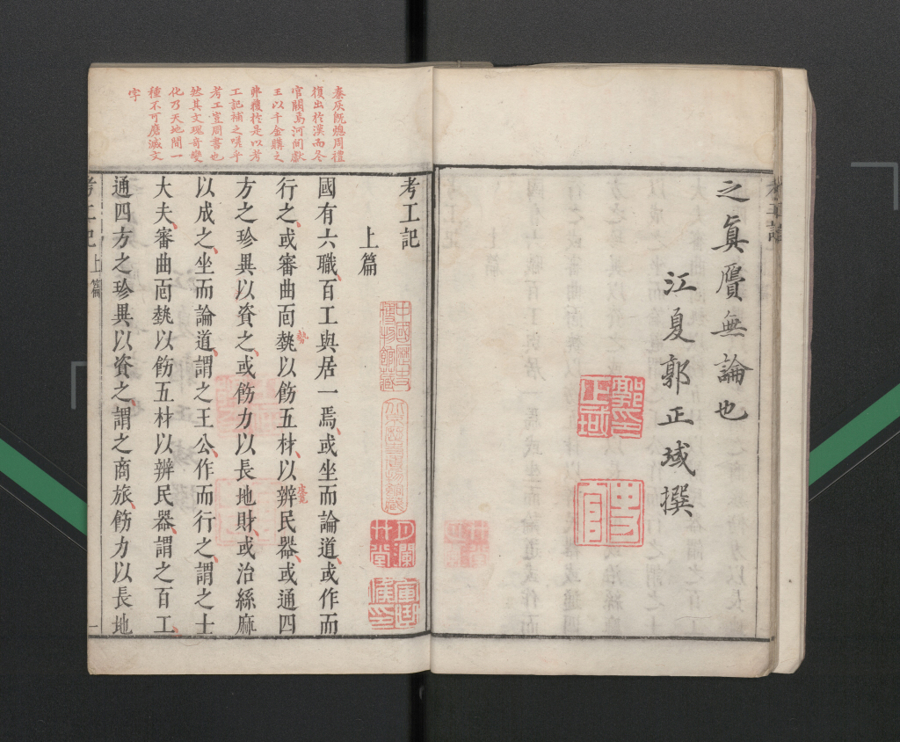 之眞贋無論也
江夏郭正域撰
秦灰旣熄周禮
復出於漢而冬
官闕焉河間獻
王以千金購之
弗獲於是以考
工記補之嗟乎
考工豈周書也
然其文瑰奇變
化乃天地間一
種不可磨滅文
字
考工記
上篇
國有六職百工與居一焉或坐而論道或作而
行之或審曲靣埶以飭五材以辨民器或通四
方之珍異以資之或飭力以長地財或治絲麻
以成之坐而論道謂之王公作而行之謂之士
大夫審曲靣埶以飭五材以辨民器謂之百工
通四方之珍異以資之謂之商旅飭力以長地
考工記
上篇
一
郭印正域
中國歷史博物館藏